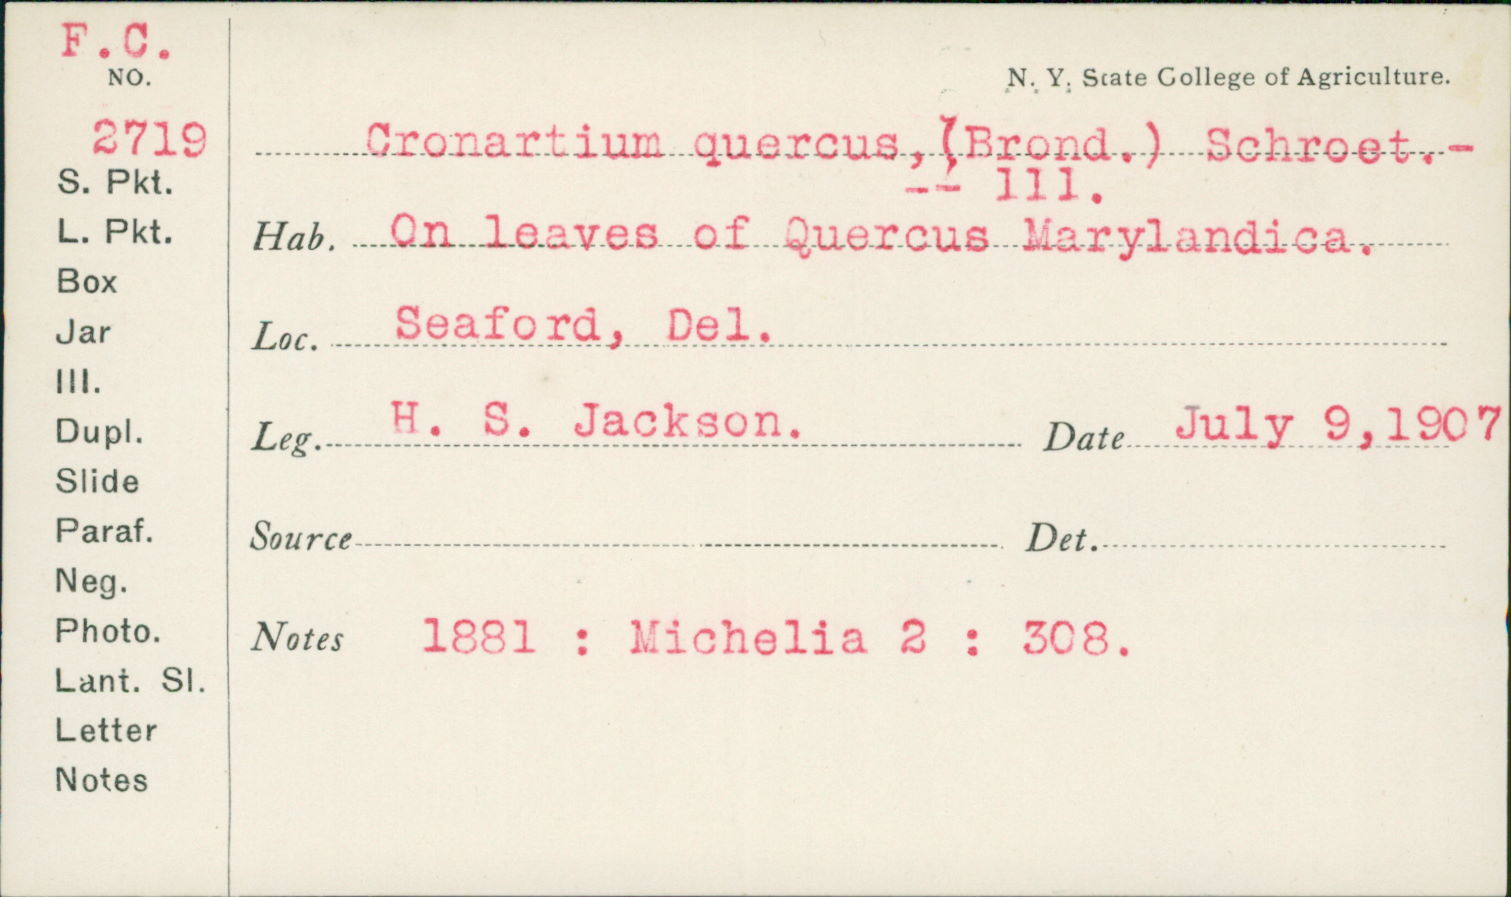 F.C.
NO.
2719
S. Pkt.
L. Pkt.
Box
Jar
Ill.
Dupl.
Slide
Paraf.
Neg.
Photo.
Lant. Sl.
Letter
Notes
N. Y. State College of Agriculture.
Cronartium quercus, (Brond.) Schroet.-
-- 111.
Hab. On leaves of Quercus Marylandica.
Loc. Seaford, Del.
Leg. H. S. Jackson. Date July 9,1907
Source Det.
Notes 1881 : Michelia 2 : 308.